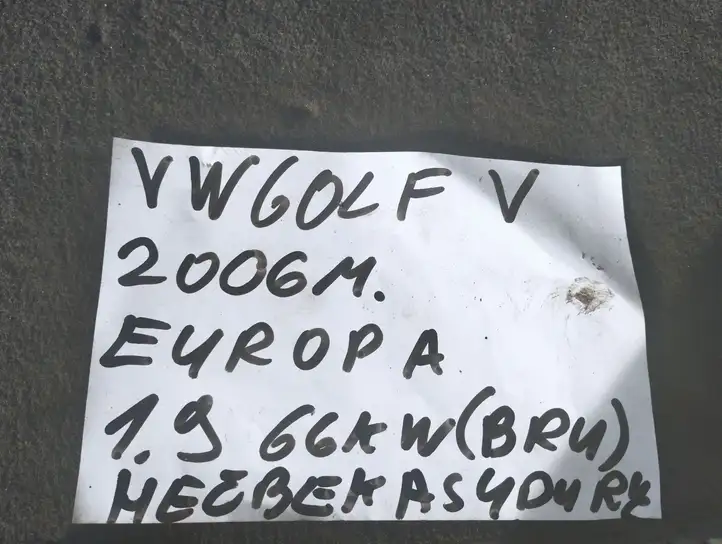 VW GOLF V
2006M.
EUROPA
1.9 66KW(BRU)
HEČBEKAS 4DURŲ